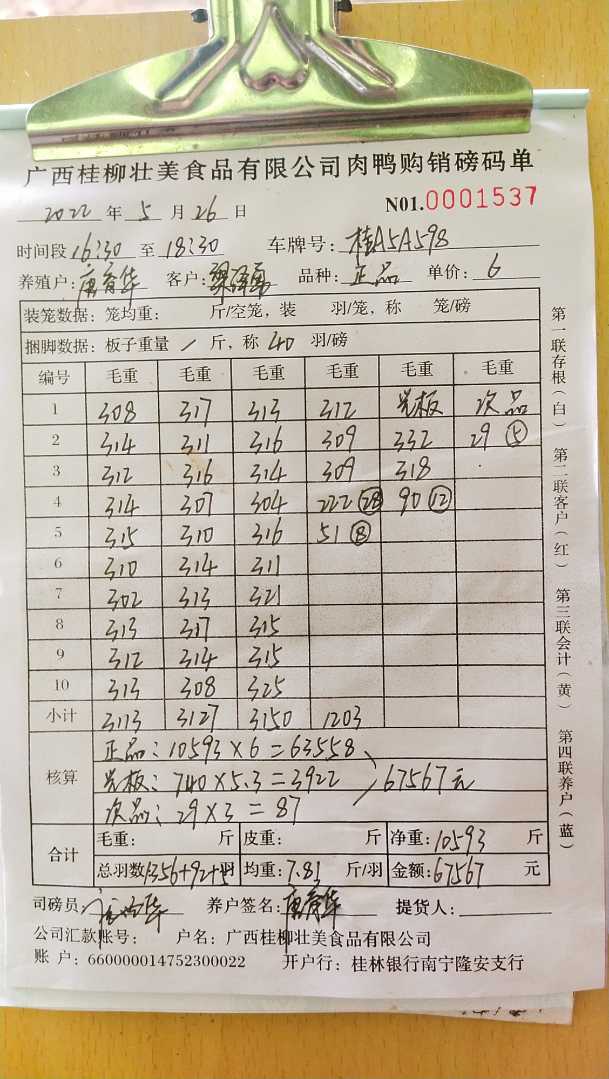 广西桂柳壮美食品有限公司肉鸭购销磅码单
2022 年 5 月 26 日 N01.0001537
时间段 16:30 至 18:30 车牌号: 桂A5A598
养殖户: 唐育华 客户: 品种: 正品 单价: 6
装笼数据: 笼均重: 斤/空笼, 装 羽/笼, 称 笼/磅
捆脚数据: 板子重量 / 斤, 称 40 羽/磅
编号 毛重 毛重 毛重 毛重 毛重 毛重
1 308 317 313 312 光板 次品
2 314 311 316 309 332 29 ⑤
3 312 316 314 309 318
4 314 307 304 222 ㉘ 90 ⑫
5 315 310 316 51 ⑧
6 310 314 311
7 302 313 321
8 313 317 315
9 312 314 315
10 313 308 325
小计 3113 3127 3150 1203
核算
正品: 10593 × 6 = 63558
光板: 740 × 5.3 = 3922
67567元
次品: 29 × 3 = 87
合计
毛重: 斤 皮重: 斤 净重: 10593 斤
总羽数 1356+92+5 羽 均重: 7.81 斤/羽 金额: 67567 元
司磅员: 养户签名: 唐育华 提货人:
公司汇款账号: 户名: 广西桂柳壮美食品有限公司
账 户: 660000014752300022 开户行: 桂林银行南宁隆安支行
第一联存根(白)
第二联客户(红)
第三联会计(黄)
第四联养户(蓝)